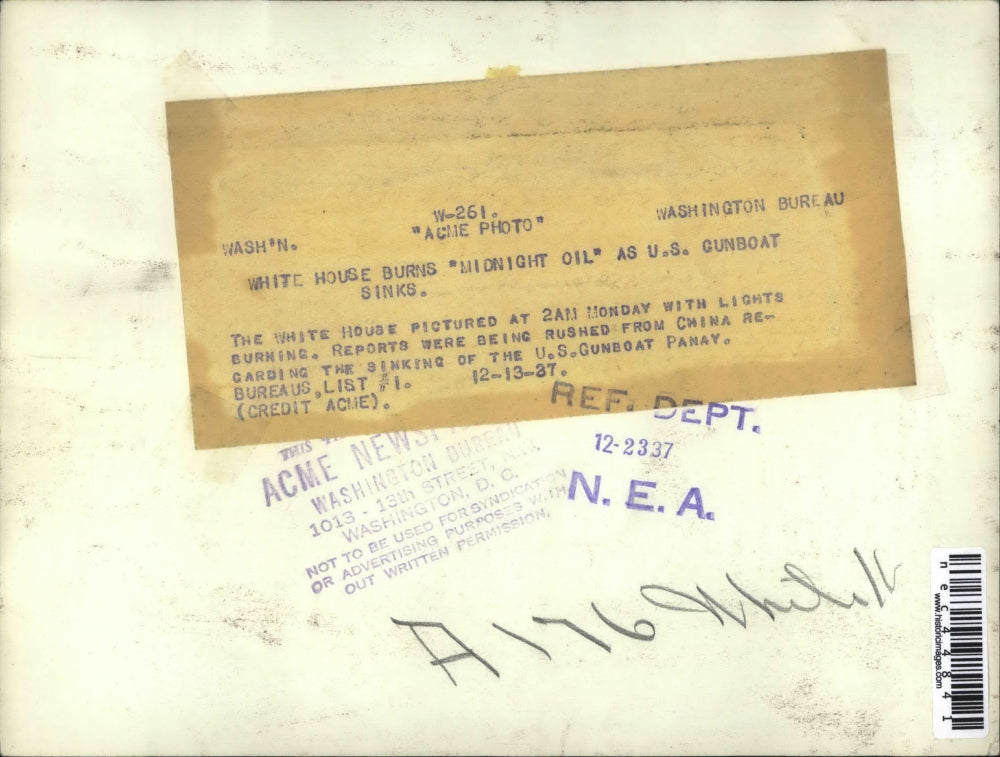 W-261.
WASH'N. "ACME PHOTO" WASHINGTON BUREAU
WHITE HOUSE BURNS "MIDNIGHT OIL" AS U.S. GUNBOAT
SINKS.
THE WHITE HOUSE PICTURED AT 2AM MONDAY WITH LIGHTS
BURNING. REPORTS WERE BEING RUSHED FROM CHINA RE-
GARDING THE SINKING OF THE U.S.GUNBOAT PANAY.
BUREAUS,LIST #1. 12-13-37.
(CREDIT ACME).
REF. DEPT.
12-2337
N. E. A.
THIS
ACME
WASHINGTON BUREAU
1013 - 13th STREET, N.W.
WASHINGTON, D. C.
NOT TO BE USED FOR SYNDICATION
OR ADVERTISING PURPOSES WITH
OUT WRITTEN PERMISSION.
A 176
necn44841
www.historicimages.com